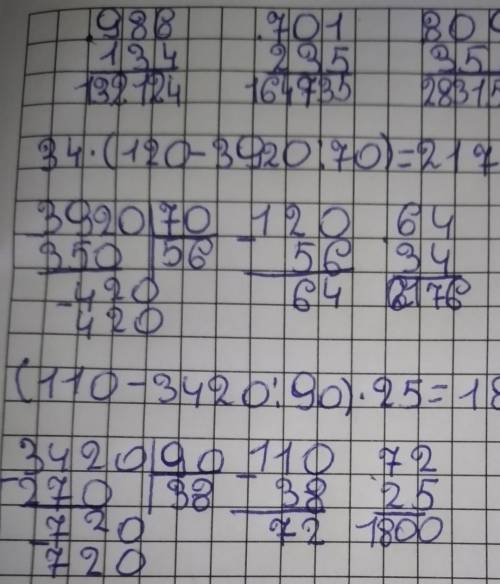 986 .701 809
134 235 35
132124 164735 28315
34·(120-3920:70)=217
3920|70 -120 .64
350 |56 56 34
-420 64 2176
420
(110-3420:90)·25=18
3420|90 -110 72
-270 |38 38 25
-720 72 1800
720